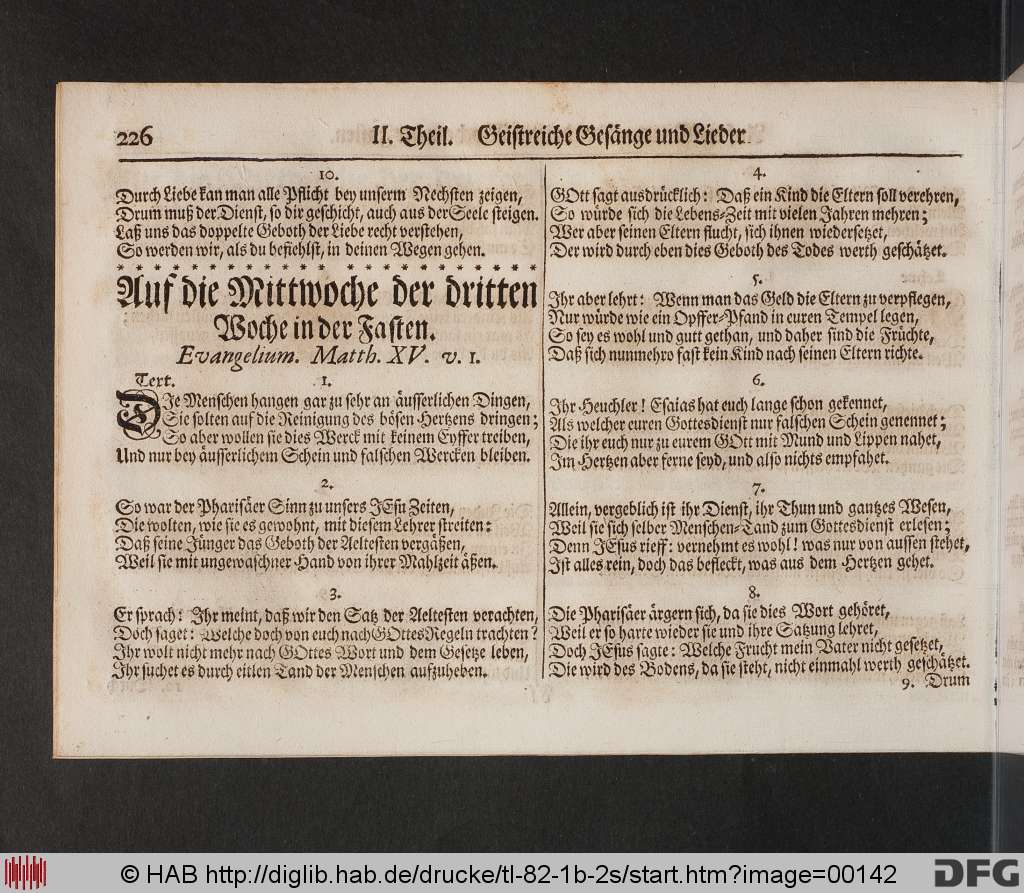 226
II. Theil. Geistreiche Gesänge und Lieder
10.
Durch Liebe kan man alle Pflicht bey unserm Nechsten zeigen,
Drum muß der Dienst, so dir geschicht, auch aus der Seele steigen.
Laß uns das doppelte Geboth der Liebe recht verstehen,
So werden wir, als du befiehlst, in deinen Wegen gehen.
* * * * * * * * * * * * * * * * * * * * * * * * * * *
Auf die Mittwoche der dritten
Woche in der Fasten.
Evangelium. Matth. XV. v. 1.
Text. 1.
DIe Menschen hangen gar zu sehr an äusserlichen Dingen,
Sie solten auf die Reinigung des bösen Hertzens dringen;
So aber wollen sie dies Werck mit keinem Eyffer treiben,
Und nur bey äusserlichem Schein und falschen Wercken bleiben.
2.
So war der Pharisäer Sinn zu unsers JEsu Zeiten,
Die wolten, wie sie es gewohnt, mit diesem Lehrer streiten:
Daß seine Jünger das Geboth der Aeltesten vergäßen,
Weil sie mit ungewaschner Hand von ihrer Mahlzeit äßen.
3.
Er sprach: Ihr meint, daß wir den Satz der Aeltesten verachten,
Doch saget: Welche doch von euch nach GOttes Regeln trachten?
Ihr wolt nicht mehr nach GOttes Wort und dem Gesetze leben,
Ihr suchet es durch eitlen Tand der Menschen aufzuheben.
4.
GOtt sagt ausdrücklich: Daß ein Kind die Eltern soll verehren,
So würde sich die Lebens-Zeit mit vielen Jahren mehren;
Wer aber seinen Eltern flucht, sich ihnen wiedersetzet,
Der wird durch eben dies Geboth des Todes werth geschätzet.
5.
Ihr aber lehrt: Wenn man das Geld die Eltern zu verpflegen,
Nur würde wie ein Opffer-Pfand in euren Tempel legen,
So sey es wohl und gutt gethan, und daher sind die Früchte,
Daß sich nunmehro fast kein Kind nach seinen Eltern richte.
6.
Ihr Heuchler! Esaias hat euch lange schon gekennet,
Als welcher euren Gottesdienst nur falschen Schein genennet;
Die ihr euch nur zu eurem GOtt mit Mund und Lippen nahet,
Im Hertzen aber ferne seyd, und also nichts empfahet.
7.
Allein, vergeblich ist ihr Dienst, ihr Thun und gantzes Wesen,
Weil sie sich selber Menschen-Tand zum Gottesdienst erlesen;
Denn JEsus rieff: vernehmt es wohl! was nur von aussen stehet,
Ist alles rein, doch das befleckt, was aus dem Hertzen gehet.
8.
Die Pharisäer ärgern sich, da sie dies Wort gehöret,
Weil er so harte wieder sie und ihre Satzung lehret,
Doch JEsus sagte: Welche Frucht mein Vater nicht gesetzet,
Die wird des Bodens, da sie steht, nicht einmahl werth geschätzet.
9. Drum
© HAB http://diglib.hab.de/drucke/tl-82-1b-2s/start.htm?image=00142
DFG